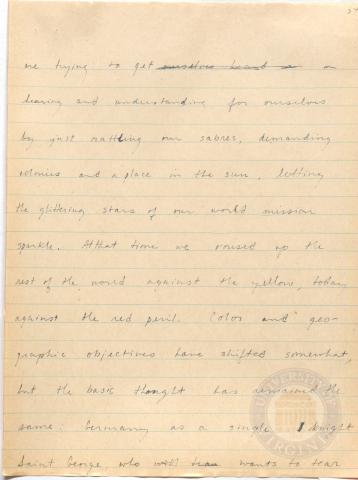 37
are trying to get ourselves heard a
hearing and understanding for ourselves
by just rattling our sabres, demanding
colonies and a place in the sun, letting
the glittering stars of our world mission
sparkle. At that time we roused up the
rest of the world against the yellow, today
against the red peril. Color and geo-
graphic objectives have shifted somewhat,
but the basic thought has remained the
same: Germany as a single knight
Saint George who wants to tear
UNIVERSITY
VIRGINIA